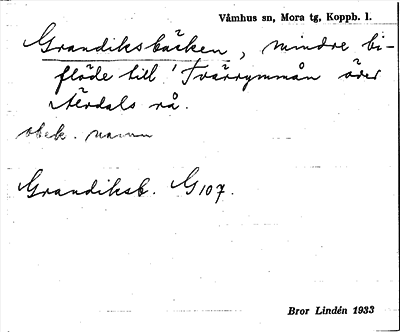 Våmhus sn, Mora tg, Koppb. l.
Grandiksbäcken, mindre bi-
flöde till Tvärrymmån över
rå.
obek. namn
Grandiksb. G107.
Bror Lindén 1933